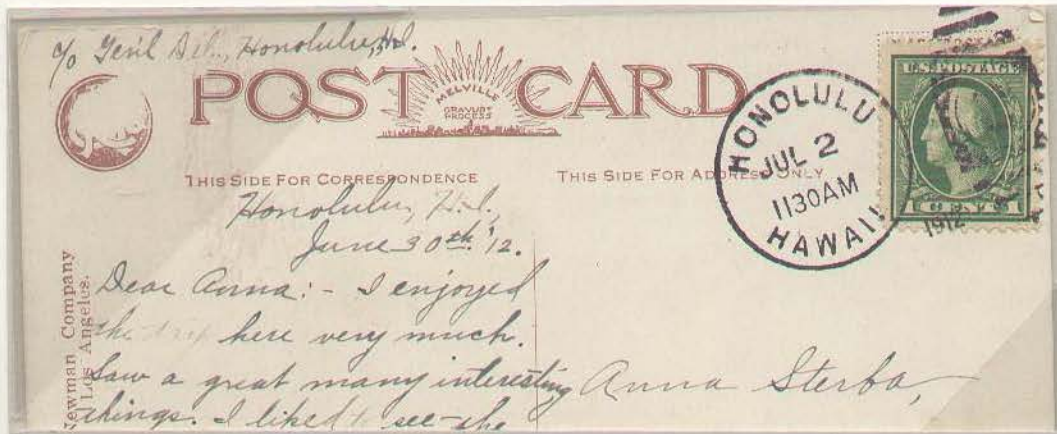 c/o Genl Del., Honolulu, H.I.
POST CARD
MELVILLE
GRAVURE
PROCESS
THIS SIDE FOR CORRESPONDENCE
THIS SIDE FOR ADDRESS ONLY
HONOLULU
JUL 2
1130AM
HAWAII
1912
U.S. POSTAGE
1 CENT 1
Newman Company
Los Angeles.
Honolulu, H.I.,
June 30th '12.
Dear Anna:- I enjoyed
the trip here very much.
Saw a great many interesting
things. I liked to see the
Anna Sterba,